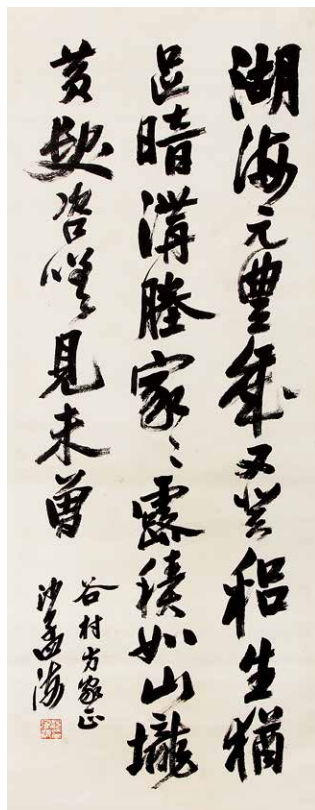 湖海元豐歲又登稆生猶
足暗溝塍家〻露積如山壠
黃髮咨嗟見未曾
谷村方家正
沙孟海